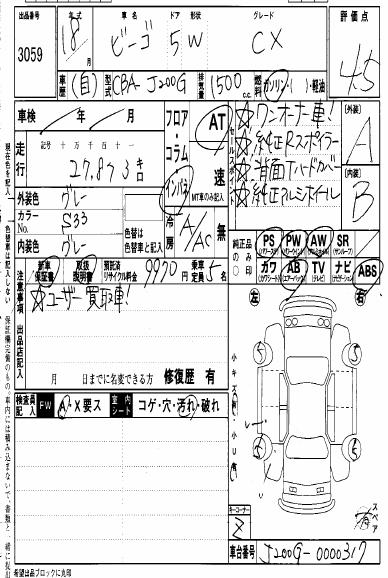 出品番号 年式 車名 ドア 形状 グレード 評価点
3059 18 ビーゴ 5 W CX 4.5
月
車歴 (自) 型式 CBA-J200G 排気量 1500 c.c. 燃料 ガソリン・( )・軽油
車検 年 月 フロア・コラム・インパネ AT ☆ワンオーナー車!
走行 記号 十 万 千 百 十 一 ☆純正Rスポイラー
27,873 km 速 ☆背面Tハードカバー
MT車のみ記入 ☆純正アルミホイール
セールスポイント
[外装] A
[内装] B
外装色 グレー
カラーNo. S33 色替は色替車と記入 冷房 A/C AAC 無
内装色 グレー
純正品の〇印 PS PW AW SR
(パワステ) (パワーウィンド) (アルミホイール) (サンルーフ)
カワ AB TV ナビ ABS
(カワシート) (エアーバック) (テレビ) (ナビゲーション)
新車保証書 取扱説明書 預託済リサイクル料金 9970 円 乗車定員 5 名
注意事項 出品店記入
☆ユーザー買取車!
左 右
月 日までに名変できる方 修復歴 有
検査員記入 FW A・X要ス 室内シート コゲ・穴・汚れ・破れ
スペア 有
車台番号 J200G-0000317
希望出品ブロックに丸印